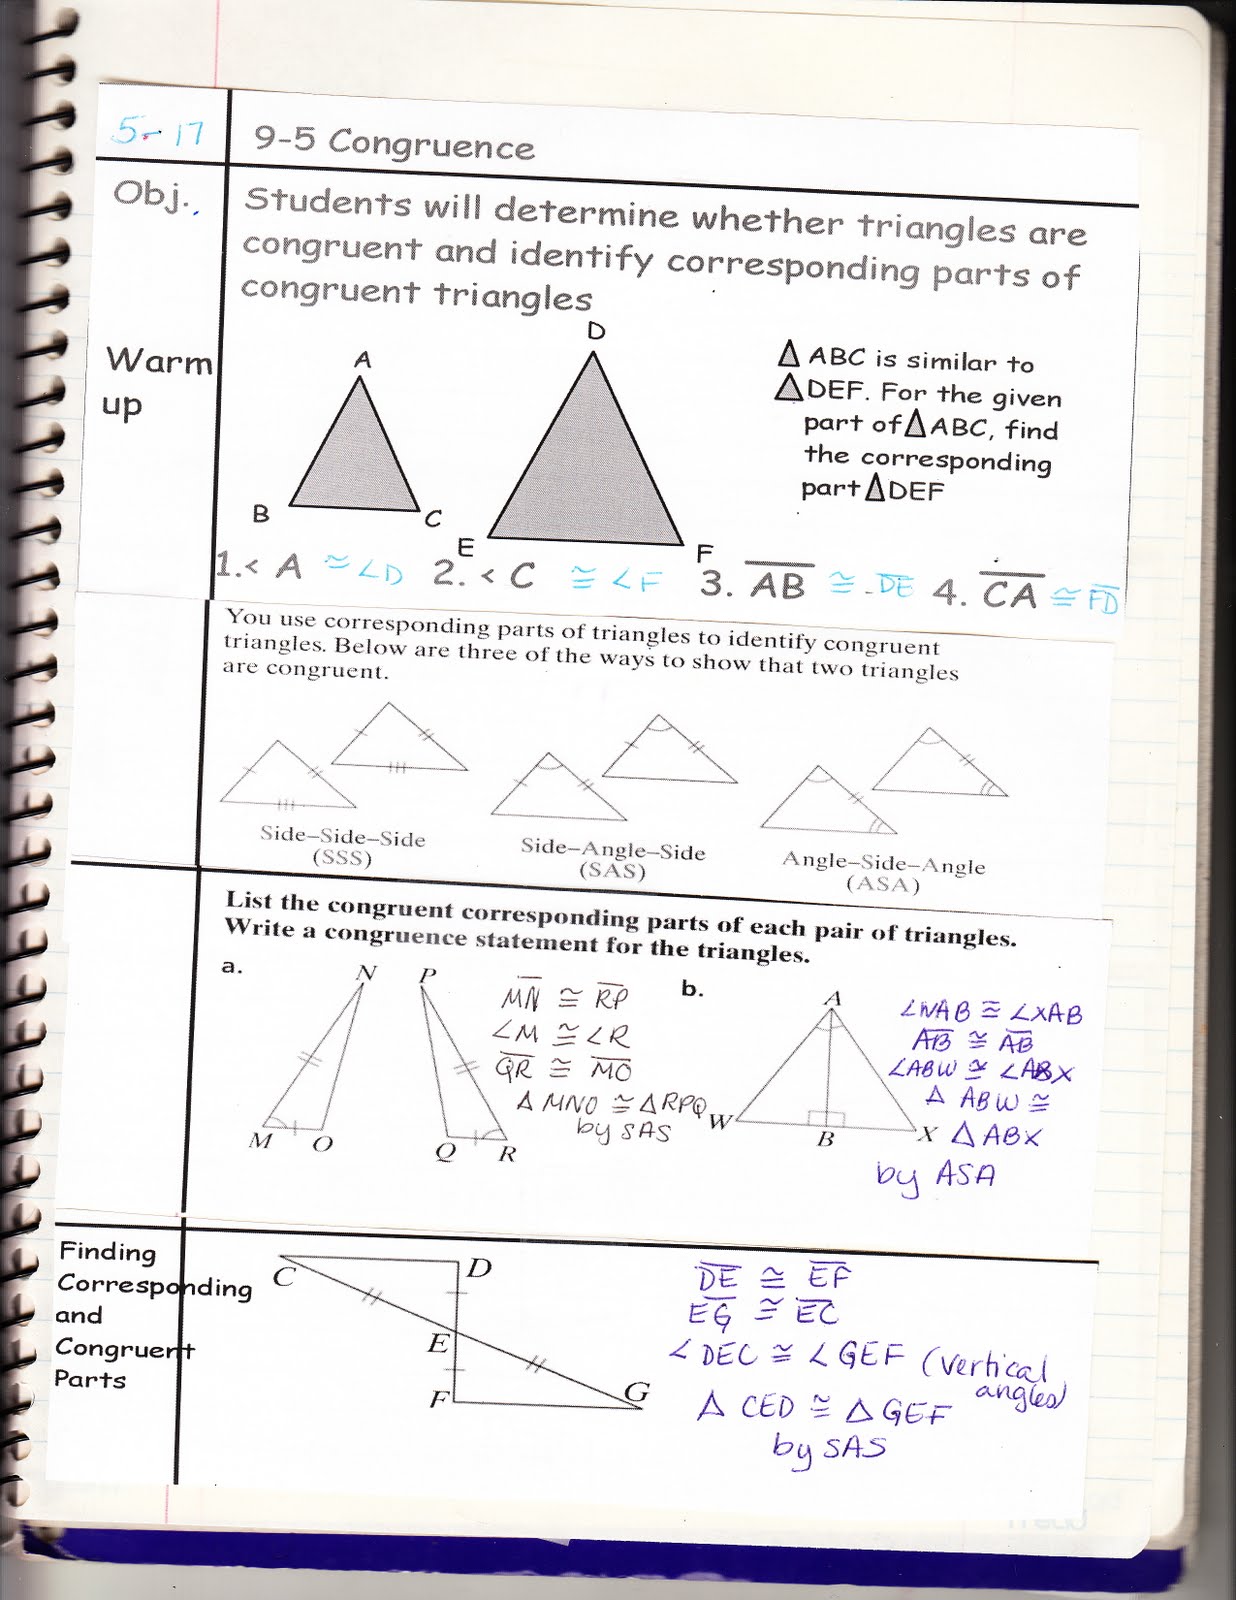 5-17
9-5 Congruence
Obj.
Students will determine whether triangles are
congruent and identify corresponding parts of
congruent triangles
Warm
up
A
B
C
D
E
F
△ ABC is similar to
△DEF. For the given
part of △ABC, find
the corresponding
part △DEF
1.< A ≅ ∠D 2. < C ≅ ∠F 3. A̅B̅ ≅ D̅E̅ 4. C̅A̅ ≅ F̅D̅
You use corresponding parts of triangles to identify congruent
triangles. Below are three of the ways to show that two triangles
are congruent.
Side–Side–Side
(SSS)
Side–Angle–Side
(SAS)
Angle–Side–Angle
(ASA)
List the congruent corresponding parts of each pair of triangles.
Write a congruence statement for the triangles.
a.
N
P
M
O
Q
R
M̅N̅ ≅ R̅P̅
∠M ≅ ∠R
Q̅R̅ ≅ M̅O̅
△ MNO ≅ △RPQ
by SAS
b.
A
W
B
X
∠WAB ≅ ∠XAB
A̅B̅ ≅ A̅B̅
∠ABW ≅ ∠ABX
△ ABW ≅
△ ABX
by ASA
Finding
Corresponding
and
Congruent
Parts
C
D
E
F
G
D̅E̅ ≅ E̅F̅
E̅G̅ ≅ E̅C̅
∠DEC ≅ ∠GEF (vertical
angles)
△ CED ≅ △ GEF
by SAS